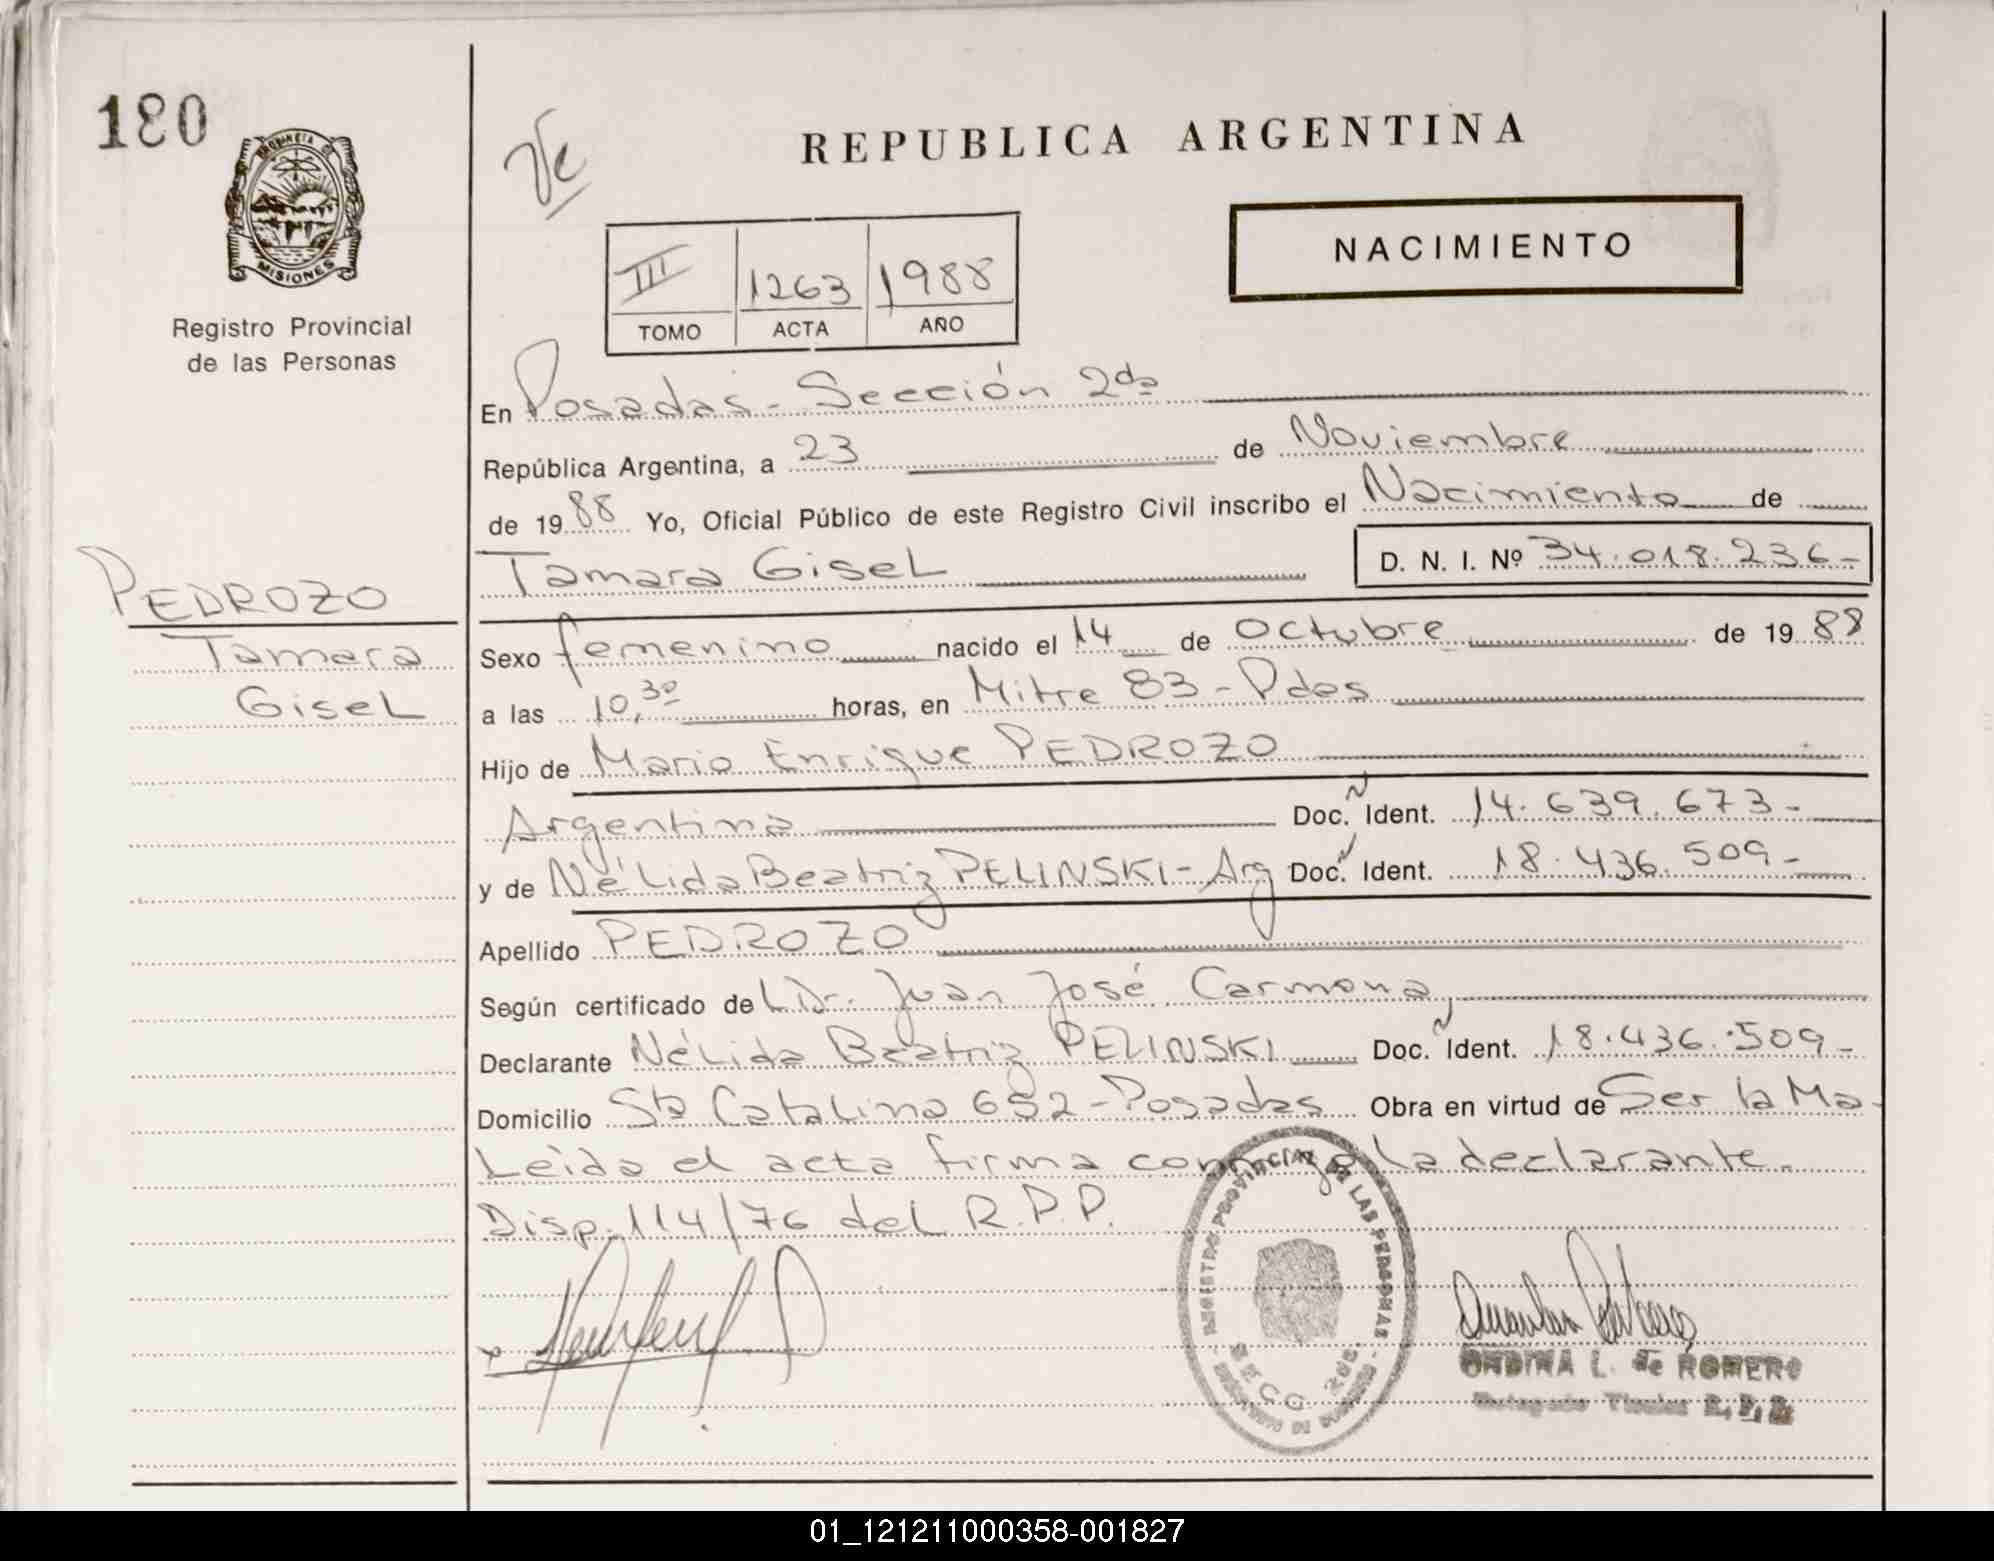 180
PROVINCIA DE
MISIONES
Registro Provincial
de las Personas
REPUBLICA ARGENTINA
NACIMIENTO
III 1263 1988
TOMO ACTA AÑO
En Posadas - Sección 2da
República Argentina, a 23 de Noviembre
de 1988 Yo, Oficial Público de este Registro Civil inscribo el Nacimiento de
Tamara Gisel D. N. I. Nº 34.018.236-
PEDROZO
Tamara
Gisel
Sexo femenino nacido el 14 de Octubre de 1988
a las 10,30 horas, en Mitre 83 - Pdas
Hijo de Mario Enrique PEDROZO
Argentina Doc. Ident. 14.639.673-
y de Nélida Beatriz PELINSKI - Arg Doc. Ident. 18.436.509-
Apellido PEDROZO
Según certificado de L Dr. Juan José Carmona
Declarante Nélida Beatriz PELINSKI Doc. Ident. 18.436.509-
Domicilio Sta Catalina 652 - Posadas Obra en virtud de Ser la Ma-
Leída el acta firma conmigo la declarante.
Disp. 114/76 del R.P.P.
REGISTRO PROVINCIAL DE LAS PERSONAS
SECC. 2da.
ONDINA L. de ROMERO
Delegado Titular R.P.P.
01_121211000358-001827